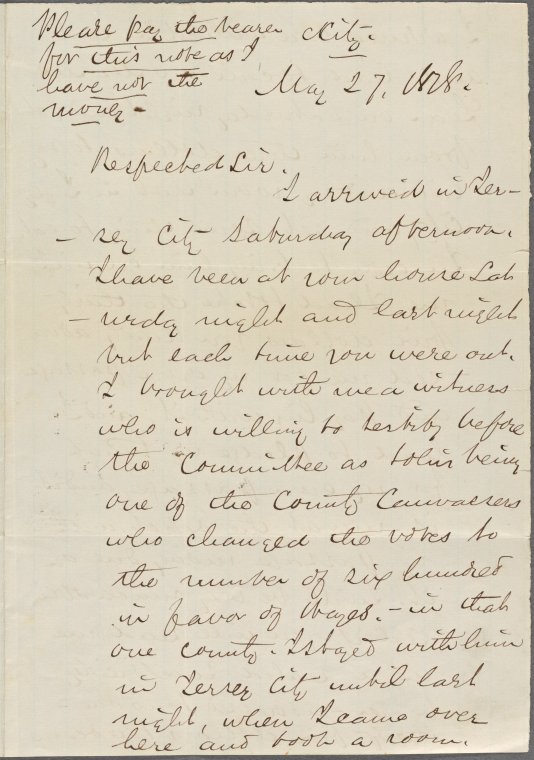 Please pay the bearer
for this note as I
have not the
money -
City.
May 27, 1878.
Respected Sir.
I arrived in Jer-
- sey City Saturday afternoon.
I have been at your house Sat
- urday night and last night
but each time you were out.
I brought with me a witness
who is willing to testify before
the Committee as to his being
one of the County Canvassers
who changed the votes to
the number of six hundred
in favor of Hayes. - in that
one county. I stayed with him
in Jersey City until last
night, when I came over
here and took a room.